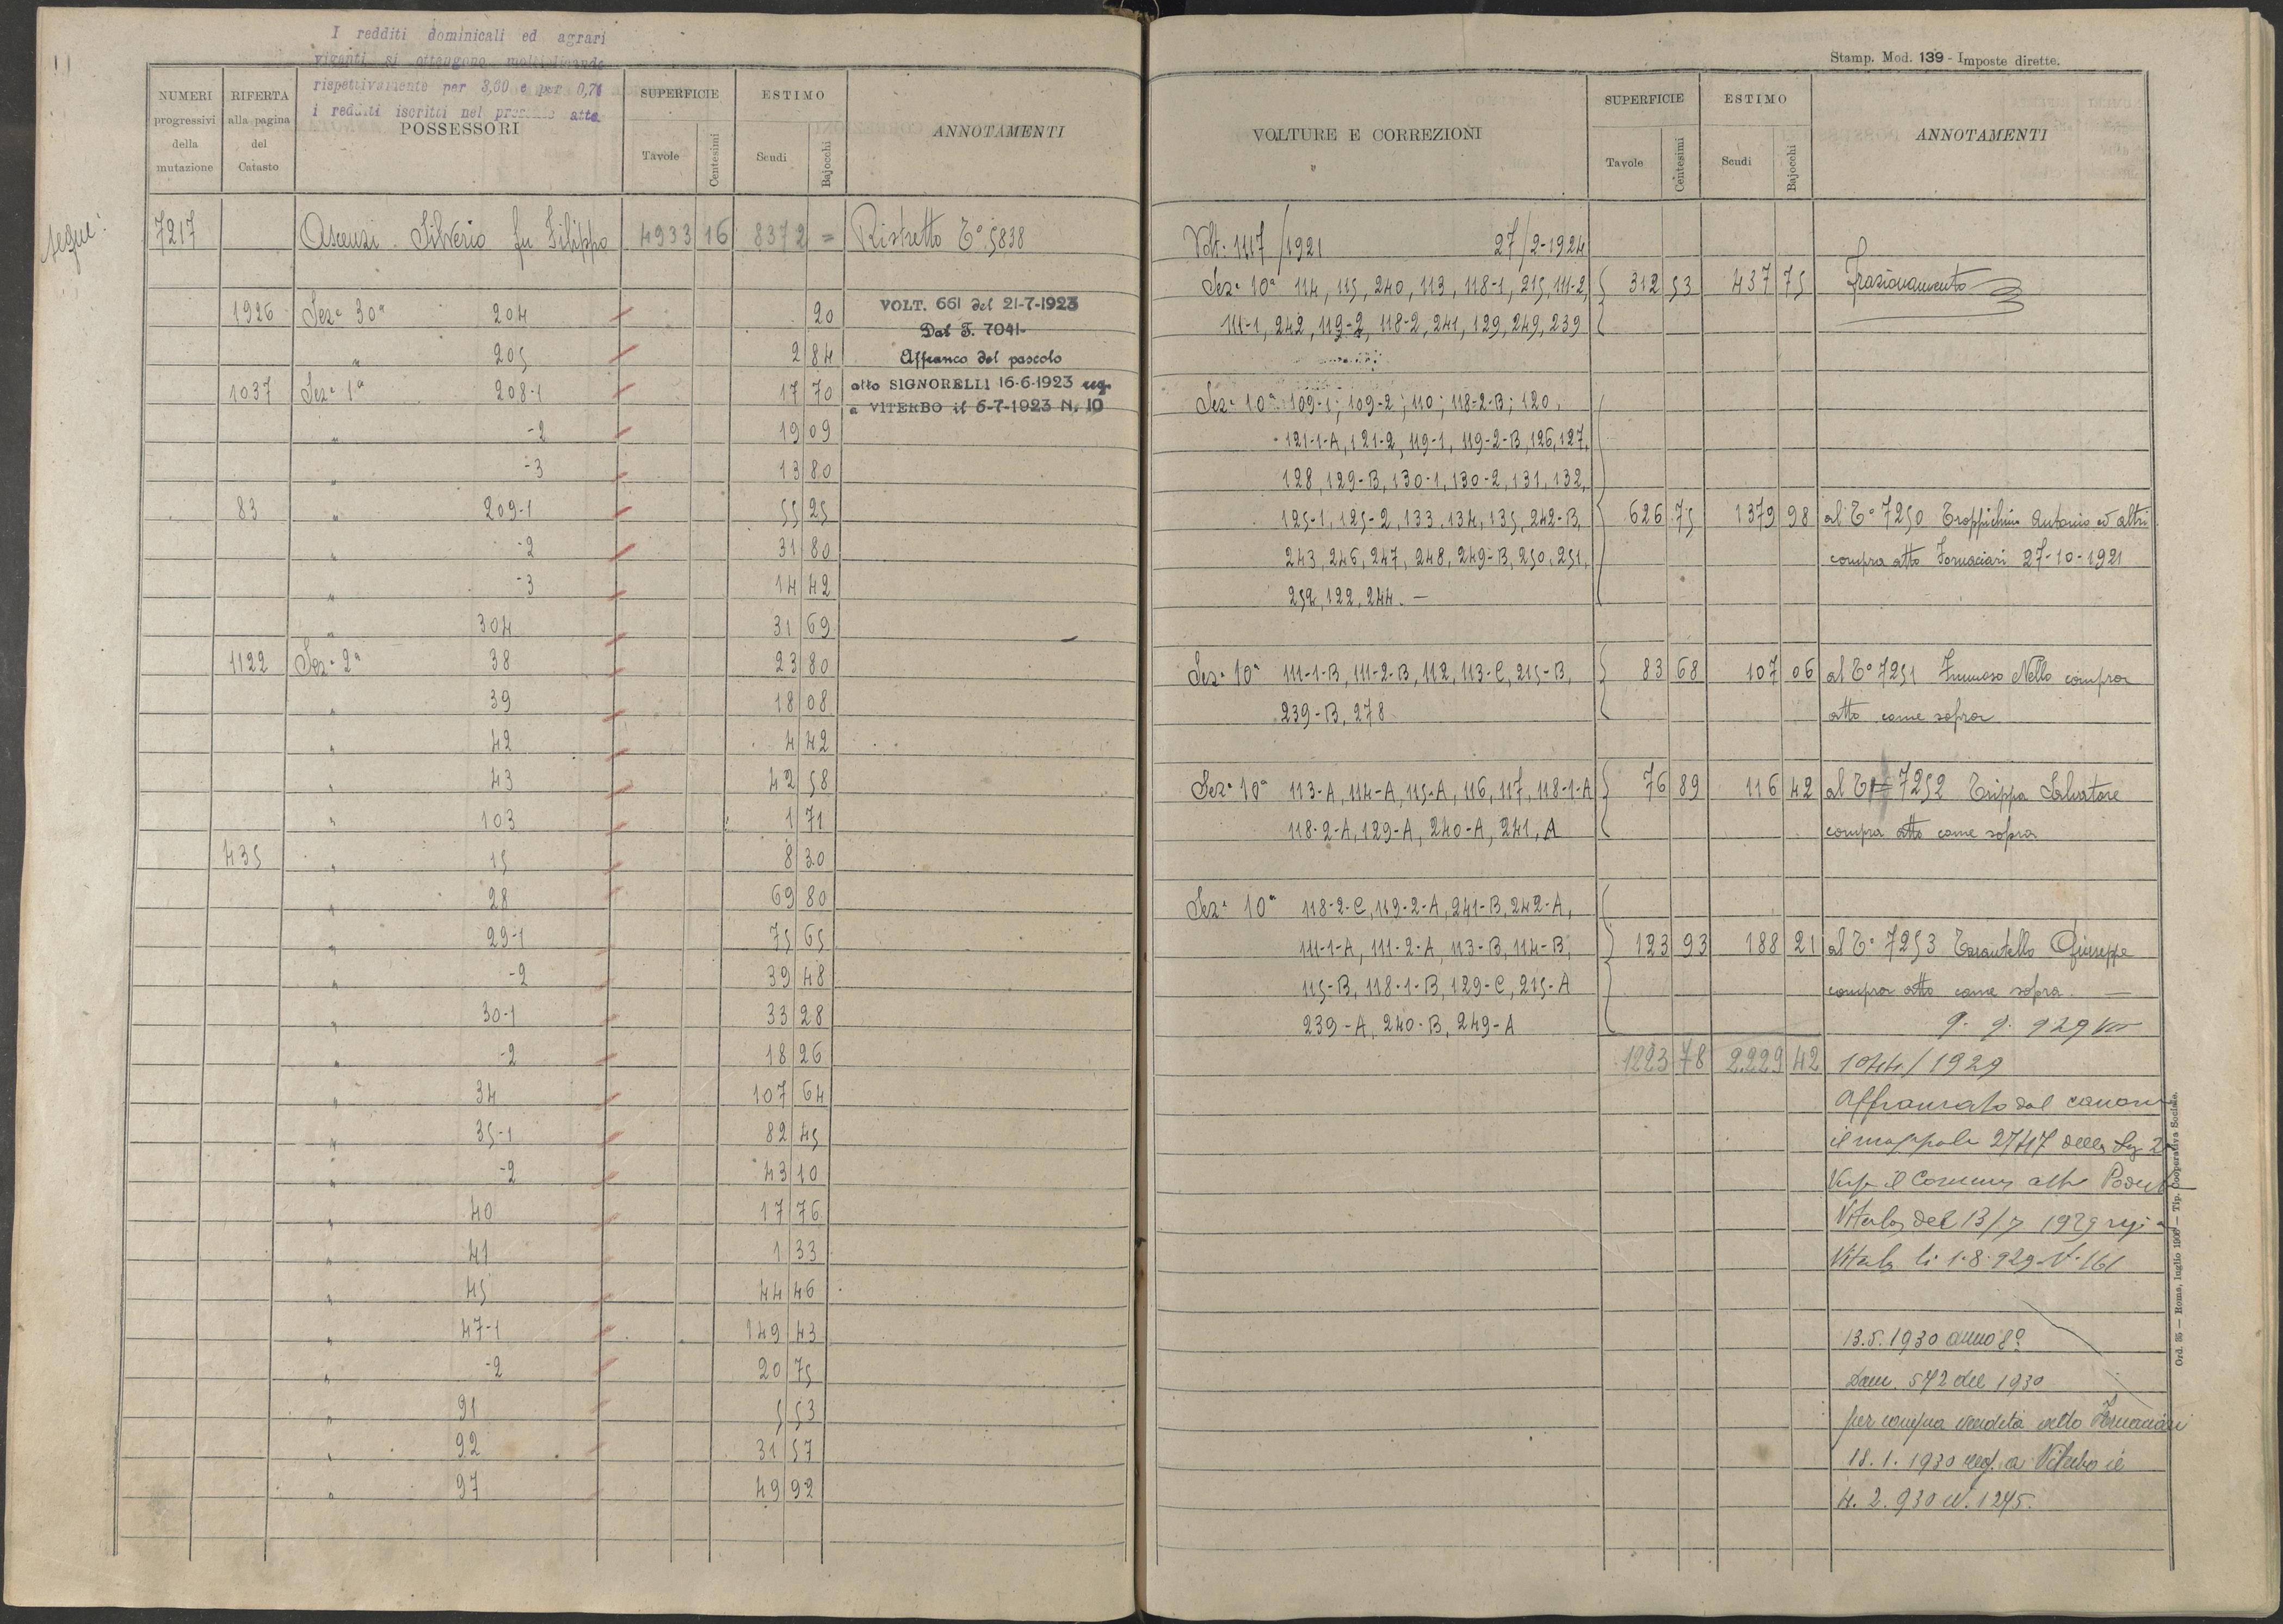 I redditi dominicali ed agrari
vigenti si ottengono moltiplicando
rispettivamente per 3,60 e per 0,76
i redditi iscritti nel presente atto
NUMERI progressivi della mutazione
RIFERTA alla pagina del Catasto
POSSESSORI
SUPERFICIE
Tavole
Centesimi
ESTIMO
Scudi
Bajocchi
ANNOTAMENTI
segue:
7217 Ascenzi Silverio fu Filippo 4933 16 8372 = Ristretto T° 5838
1926 Sez. 30ª 204 20 VOLT. 661 del 21-7-1923
Dal T. 7041-
" 205 2 84 Affranco del pascolo
1037 Sez. 1ª 208-1 17 70 atto SIGNORELLI 16-6-1923 reg.
a VITERBO il 6-7-1923 N. 10
" -2 19 09
" -3 13 80
83 " 209-1 55 25
" -2 31 80
" -3 14 42
" 304 31 69
1122 Sez. 2ª 38 23 80
" 39 18 08
" 42 4 42
" 43 42 58
" 103 1 71
435 " 15 8 30
" 28 69 80
" 29-1 75 65
" -2 39 48
" 30-1 33 28
" -2 18 26
" 34 107 64
" 35-1 82 45
" -2 43 10
" 40 17 76
" 41 1 33
" 45 44 46
" 47-1 149 43
" -2 20 75
" 91 5 53
" 92 31 57
" 97 49 92
Stamp. Mod. 139 - Imposte dirette.
VOLTURE E CORREZIONI
SUPERFICIE
Tavole
Centesimi
ESTIMO
Scudi
Bajocchi
ANNOTAMENTI
Volt. 1117/1921 27/2-1924
Sez. 10ª 114, 115, 240, 113, 118-1, 215, 111-2, 312 53 437 75 Frazionamento
111-1, 242, 119-2, 118-2, 241, 129, 249, 239
Sez. 10ª 109-1; 109-2; 110; 118-2-B; 120,
121-1-A, 121-2, 119-1, 119-2-B, 126, 127,
128, 129-B, 130-1, 130-2, 131, 132,
125-1, 125-2, 133, 134, 135, 242-B, 626 75 1379 98 al T° 7250 Troppichini Antonio ed altri
243, 246, 247, 248, 249-B, 250, 251, compra atto Fornaciari 27-10-1921
252, 122, 244. —
Sez. 10ª 111-1-B, 111-2-B, 112, 113-C, 215-B, 83 68 107 06 al T° 7251 Nello compra
239-B, 278 atto come sopra
Sez. 10ª 113-A, 114-A, 115-A, 116, 117, 118-1-A 76 89 116 42 al T° 7252 Trippa Salvatore
118-2-A, 129-A, 240-A, 241, A compra atto come sopra
Sez. 10ª 118-2-C, 119-2-A, 241-B, 242-A,
111-1-A, 111-2-A, 113-B, 114-B, 123 93 188 21 al T° 7253 Tarantello Giuseppe
115-B, 118-1-B, 129-C, 215-A compra atto come sopra. —
239-A, 240-B, 249-A 9. 9. 929 VII
1223 78 2229 42 1044/1929
Affrancato dal canone
il 27417 della Sez 2ª
il Comune atto
Viterbo del 13/7 1929 reg. a
Viterbo li 1.8.929 N. 161
13.5.1930 anno 8°
Dom. 572 del 1930
per compra vendita atto Fornaciari
18.1.1930 reg. a Viterbo il
4.2.930 N. 1245.
Ord. 85 — Roma, luglio 1906 — Tip. Cooperativa Sociale.